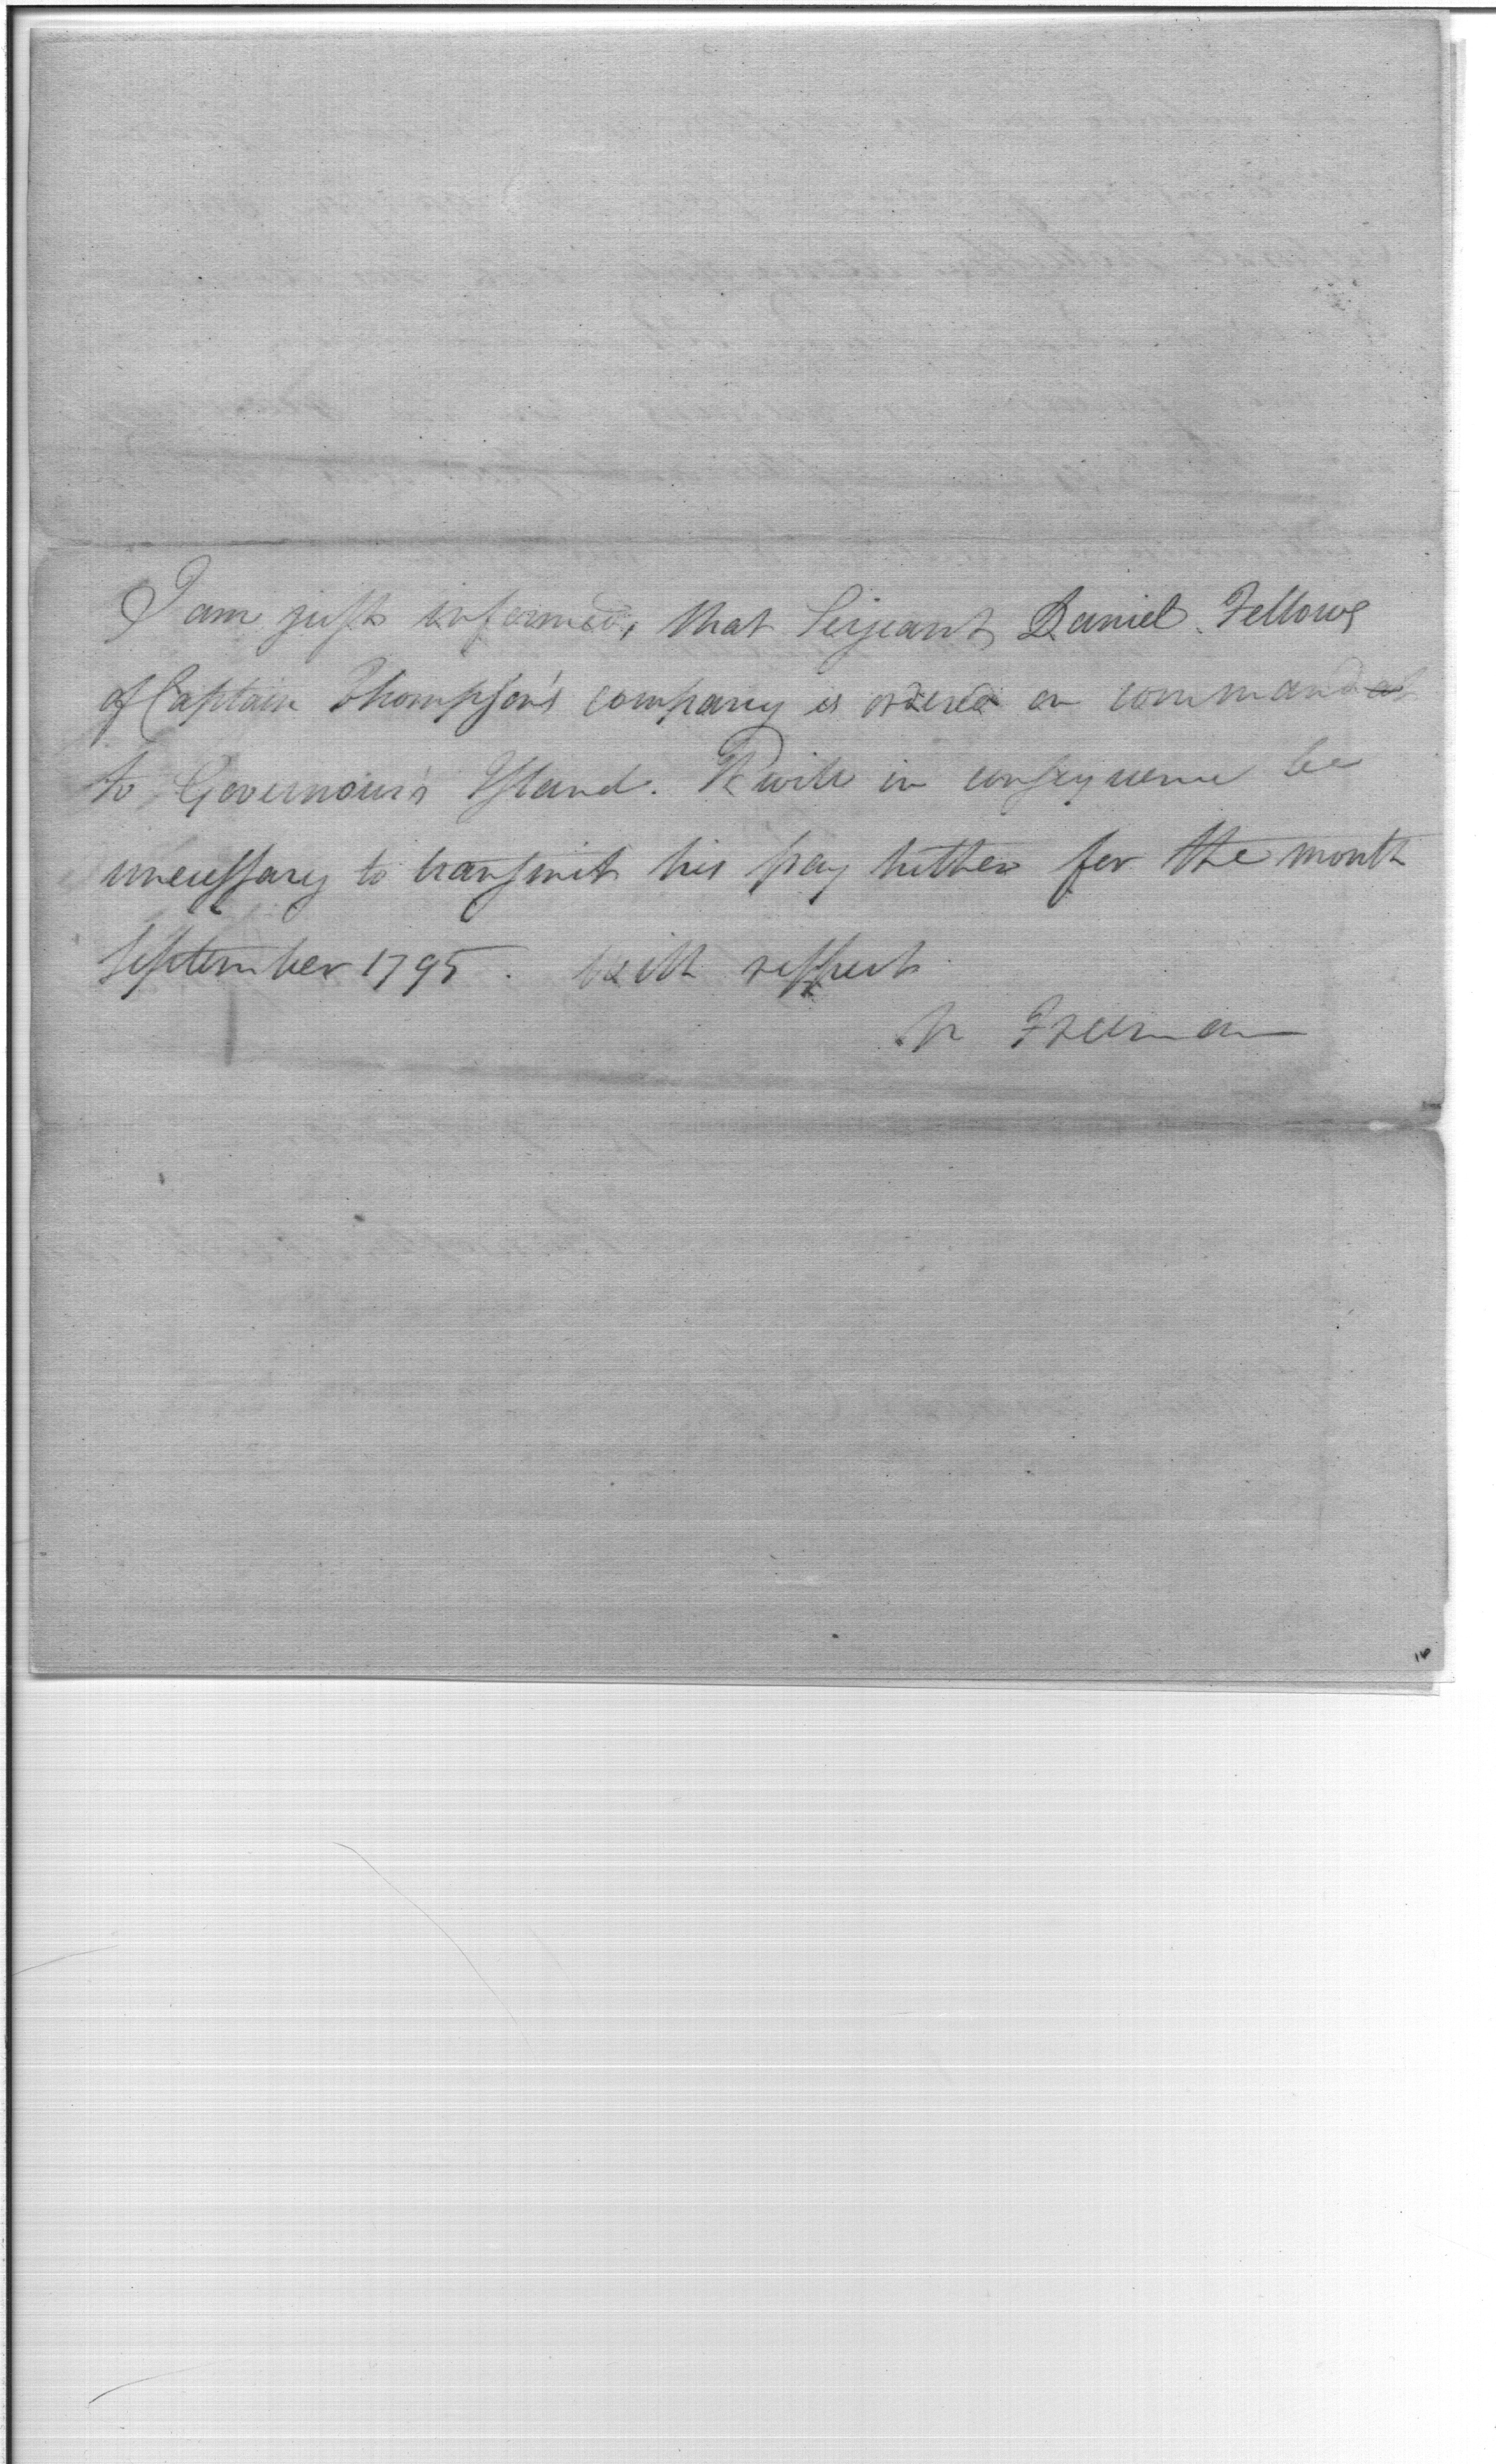 I am just informed, that Serjeant Daniel Fellows
of Captain Thompson's company is ordered on command
to Governour's Island. It will in consequence be
unecessary to transmit his pay hither for the month
September 1795. with respect
N Freeman
16